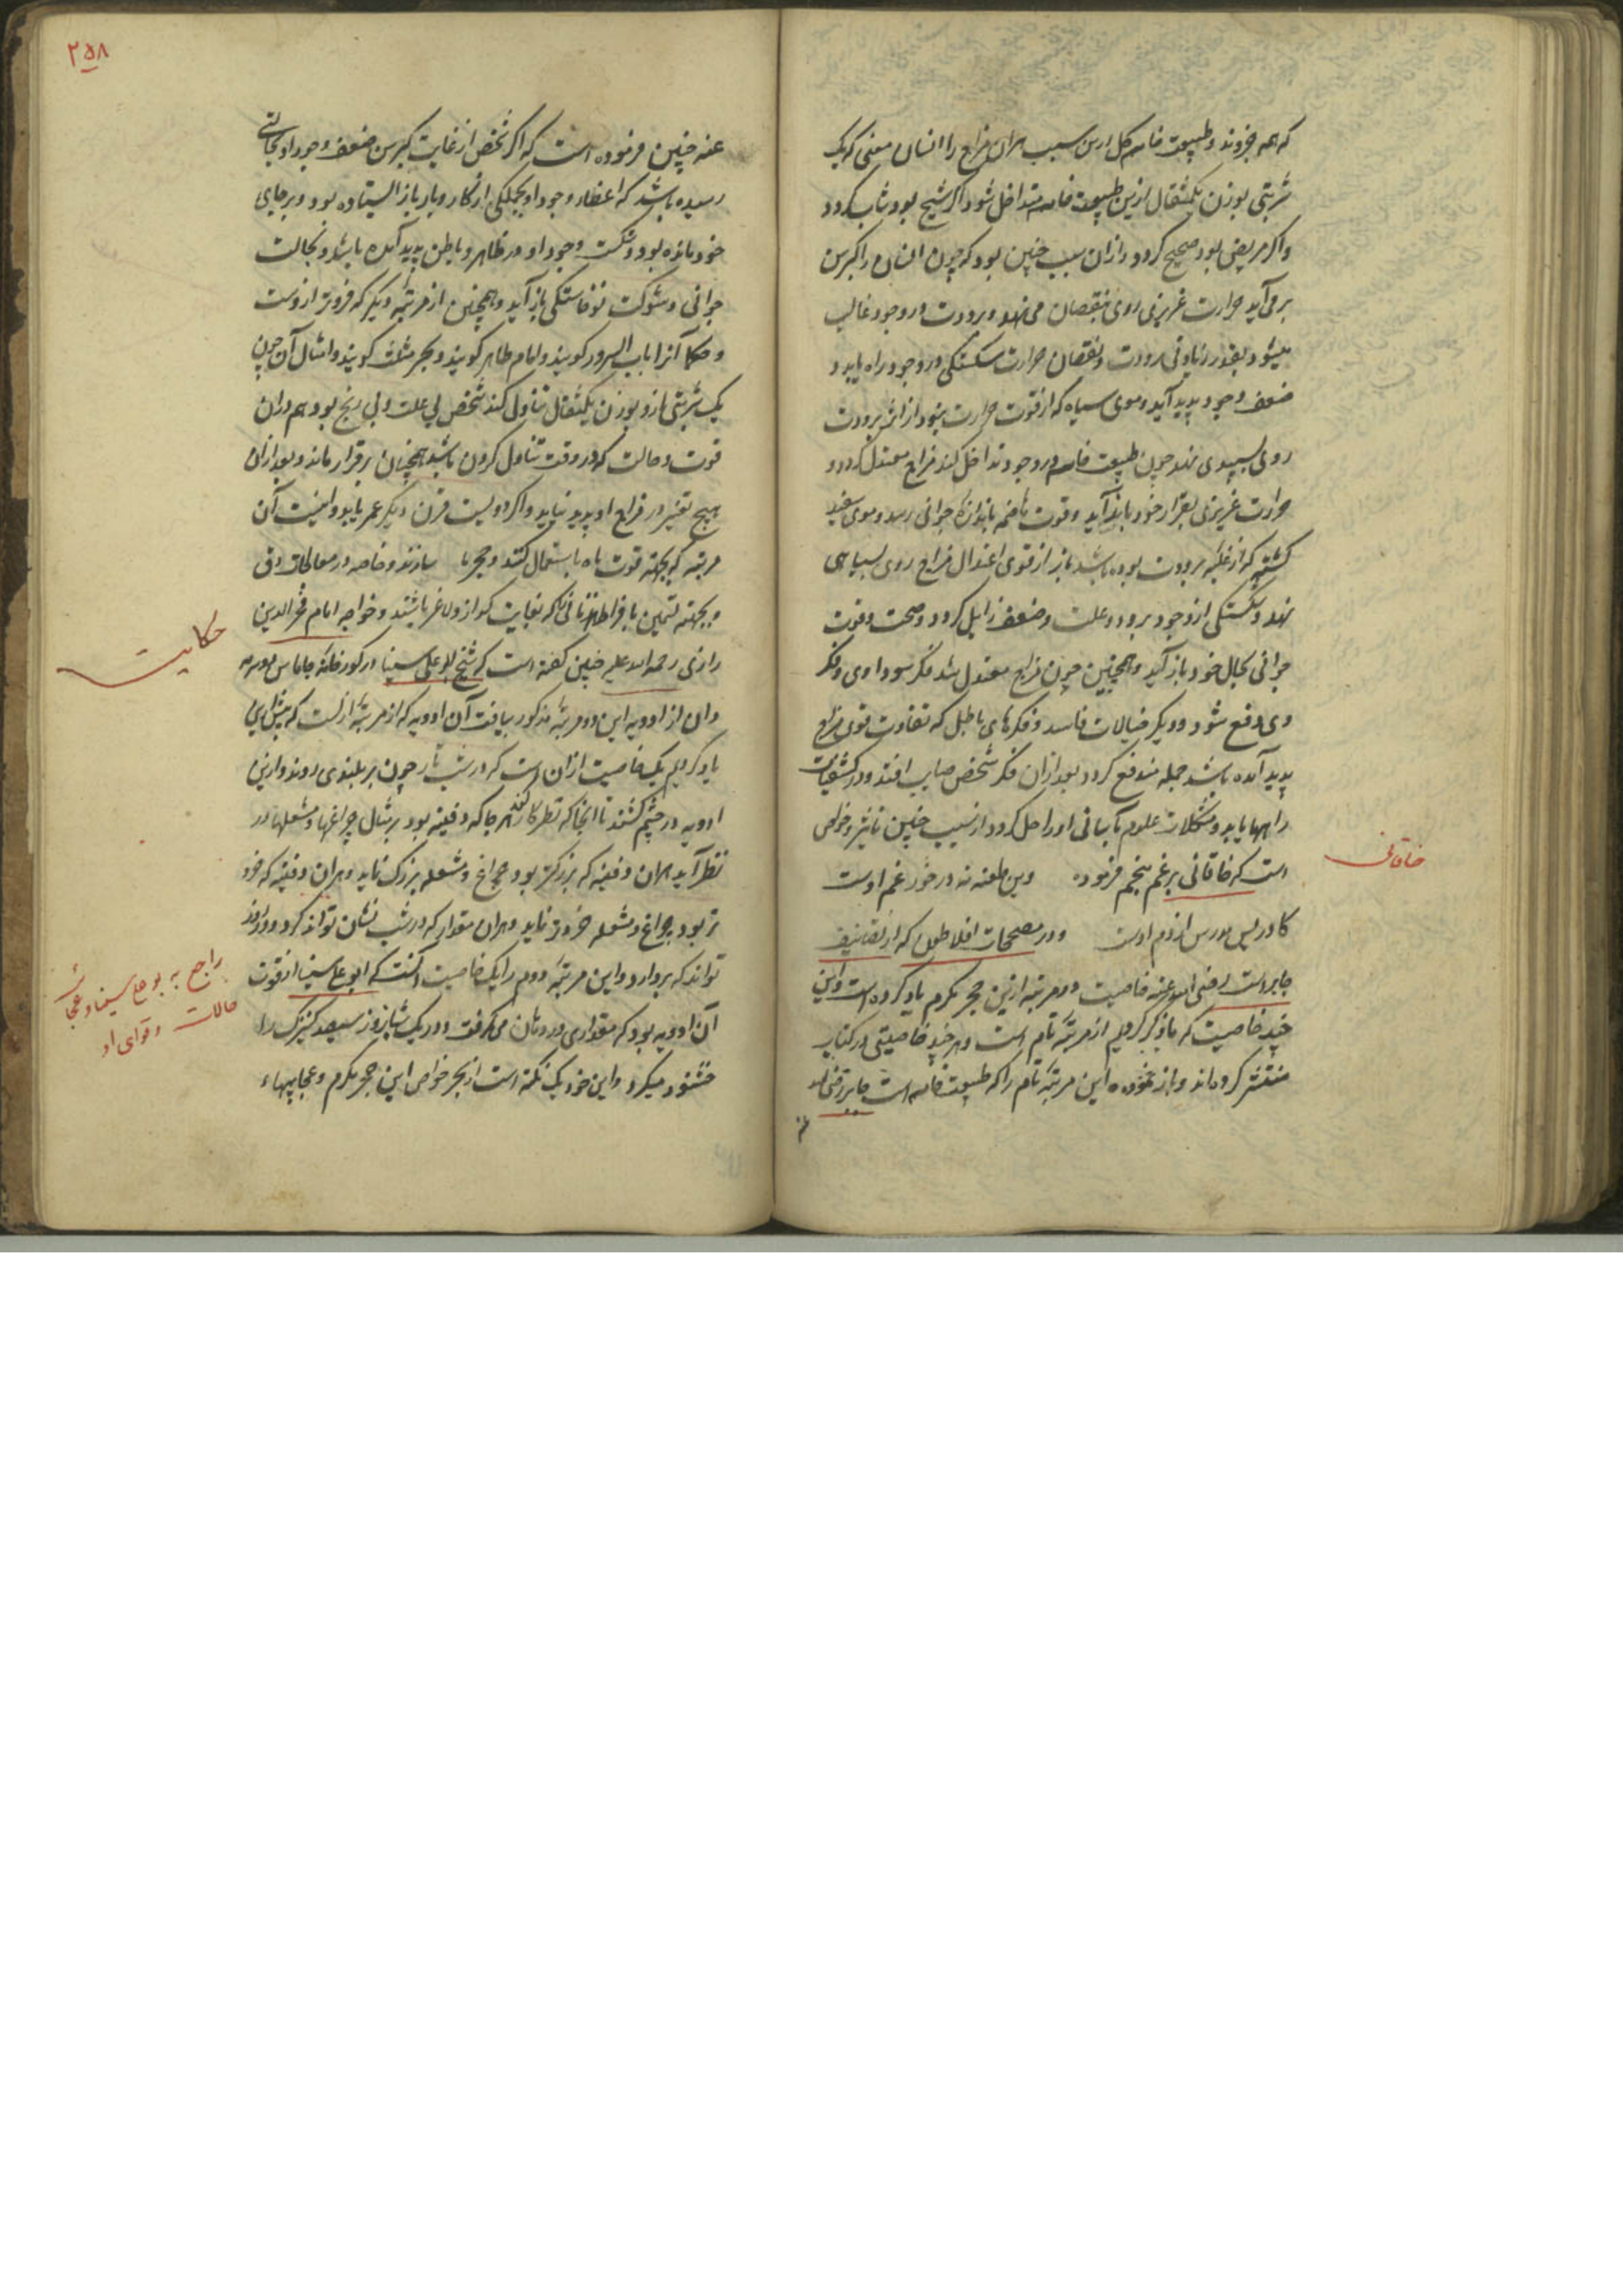 که همه جزوند و طبیعت خامسه کل ازین سبب هر آن مزاج را انسان معنی که یک
شربتی بوزن یکمثقال ازین طبیعت خامسه متداخل شود اگر شیخ بود شاب گردد
و اگر مریض بود صحیح گردد و از آن سبب چنین بود که چون انسان را کبر سن
بر می آید حرارت غریزی روی بنقصان می نهد و برودت در وجود غالب
میشود بقدر زیادتی برودت و نقصان حرارت شکستگی در وجود راه یابد و
ضعف وجود پدید آید و موی سیاه که از قوت حرارت بود از اثر برودت
روی بسپیدی نهد چون طبیعت خامسه در وجود تداخل کند مزاج معتدل گردد و
حرارت غریزی بقرار خود باز آید و قوت هاضمه باندازه جوانی رسد و موی سفید
گشته که از غلبه برودت بوده باشد باز از قوی اعتدال مزاج روی بسیاهی
نهد و شکستگی از وجود برود و علت و ضعف زایل گردد و صحت و قوت
جوانی بحال خود باز آید و همچنین چون مزاج معتدل شد فکر سوداوی و فکر
دی دفع شود و دیگر خیالات فاسد و فکرهای باطل که تفاوت قوی مزاج
پدید آمده باشد جمله مندفع گردد بعد از آن فکر شخص صایب افتد و در کشفیات
راهها یابد و مشکلات علوم آسانی او را حل گردد از سبب چنین تاثیر و خواص
است که خاقانی بر غم منجم فرموده وین طعنه نه در خورد غم اوست
کادریس مدرس از دم اوست و در مصححات افلاطون که از تصانیف
جابر است رضی الله عنه خاصیت دو مرتبه ازین حجر مکرم یاد کرده است و این
چند خاصیت که ما ذکر کردیم از مرتبه تام است و هر چند خاصیتی در کتاب
منتشر کرده اند و باز نموده این مرتبه تام را که طبیعت خامسه است جابر رضی الله
خاقانی
۲۵۸
عنه چنین فرموده است که اگر شخص از غایت کبر سن ضعف وجود او بحالتی
رسیده باشد که اعضاء وجود او بجملگی از کار و بار باز ایستاده بود و بر جای
خود مانده بود و شکست وجود او در ظاهر و باطن پدید آمده باشد و بحالت
جوانی و شوکت نوخاستگی باز آید و همچنین از مرتبه دیگر که فروتر ازوست
و حکما آنرا باب السرور گویند و امام طاهر گویند و بحر مثلث گویند و امثال آن چون
یک شربتی ازو بوزن یکمثقال تناول کند شخص بی علت و بی رنج بود هم در آن
قوت و حالت که در وقت تناول کردن باشد همچنان برقرار ماند و بعد از آن
هیچ تغییر در مزاج او پدید نیاید و اگر دویست قرن دیگر عمر یابد و این است آن
مرتبه که بجهة قوت باه استعمال کنند و حجرها سازند و خاصه در معالجات دق
و بجهة تسمین بافراط زنانی را که بغایت گداز و لاغر باشند و خواجه امام فخر الدین
رازی رحمه الله علیه چنین گفته است که شیخ ابو علی سینا در گورخانه جاماس
و آن از ادویه این دو مرتبه مذکور بیافت آن ادویه که از مرتبه ازلست که پیش ازین
یاد کردیم یک خاصیت از آن است که در شب تار چون بر بلندی روند و ازین
ادویه در چشم کشند تا انجا که نظر کار کند هر جا که دفینه بود بر مثال چراغها و مشعلها در
نظر آید هر آن دفینه که بزرگتر بود چراغ و مشعله بزرگ نماید و هر آن دفینه که خرد
تر بود چراغ و مشعله خردتر نماید و هر آن مقدار که در شب نشان تواند کرد و در روز
تواند که بردارد و این مرتبه دوم را یک خاصیت آنست که ابو علی سینا از قوت
آن ادویه بود که مقداری در دهان می گرفت و در یک شبانروز سیصد کنیزک را
خشنود میکرد و این خود یک نکته است از بحر خواص این حجر مکرم و عجایبهاء
حکایت
راجع به بوعلی سینا و عجائب
حالات و قوای او